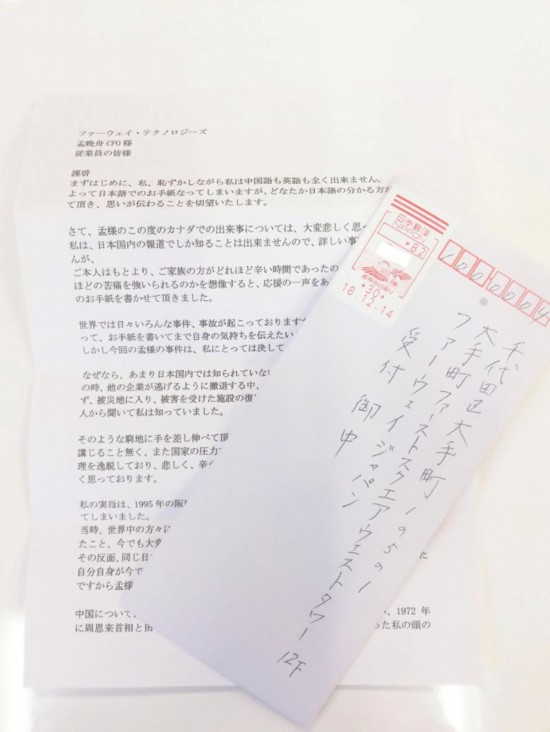 ファーウェイ・テクノロジーズ
孟晩舟 CFO 様
従業員の皆様
謹啓
まずはじめに、私、恥ずかしながら私は中国語も英語も全く出来ません。
よって日本語でのお手紙なってしまいますが、どなたか日本語の分かる方が
て頂き、思いが伝わることを切望いたします。
さて、孟様のこの度のカナダでの出来事については、大変悲しく思っ
私は、日本国内の報道でしか知ることは出来ませんので、詳しい事
んが、
ご本人はもとより、ご家族の方がどれほど辛い時間であったの
ほどの苦痛を強いられるのかを想像すると、応援の一声をあ
のお手紙を書かせて頂きました。
世界では日々いろんな事件、事故が起こっておりますが
って、お手紙を書いてまで自身の気持ちを伝えたい
しかし今回の孟様の事件は、私にとっては決して
なぜなら、あまり日本国内では知られていな
の時、他の企業が逃げるように撤退する中、
ず、被災地に入り、被害を受けた施設の復
人から聞いて私は知っていました。
そのような窮地に手を差し伸べて頂
講じること無く、また国家の圧力
理を逸脱しており、悲しく、辛
く思っております。
私の実母は、1995 年の阪
てしまいました。
当時、世界中の方々に
たこと、今でも大変
その反面、同じ日
自分自身が今で
ですから孟様
中国について、
、1972 年
に周恩来首相と田
った私の頭の
日本郵便
*82
*30*
18.12.14
1000004
千代田区大手町1-5-1
大手町ファーストスクエアウエストタワー12F
ファーウェイジャパン
受付 御中